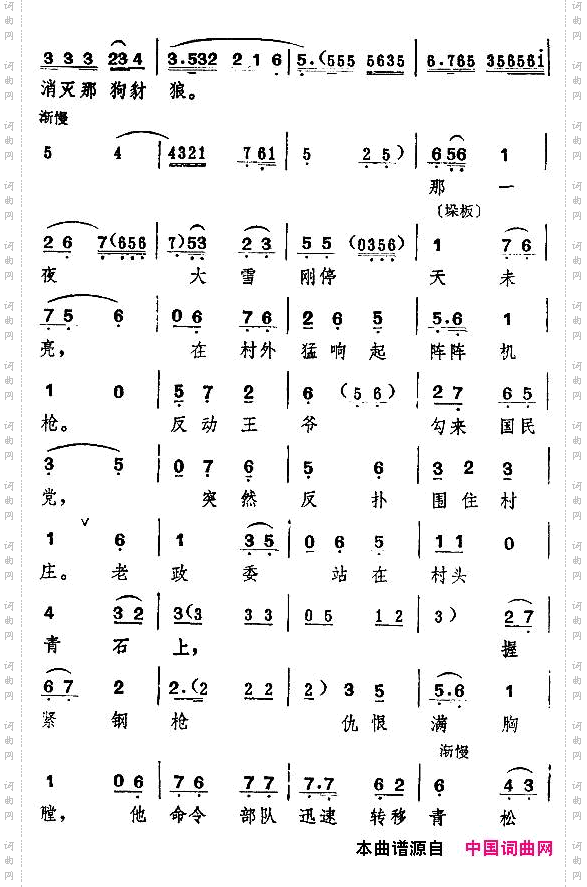 3 3 3 2 3 4 | 3.532 2 1 6 | 5.(555 5635 | 6.765 356561
消灭那狗豺 狼。
渐慢
5 4 | 4321 761 | 5 2 5) | 656 1
那 一
〔垛板〕
2 6 7(656 | 7)53 2 3 | 5 5 (0356) | 1 7 6
夜 大 雪 刚停 天 未
7 5 6 | 0 6 7 6 | 2 6 5 | 5.6 1
亮, 在 村外 猛响起 阵阵 机
1 0 | 5 7 2 | 6 (5 6) | 2 7 6 5
枪。 反动王 爷 勾来 国民
3 5 | 0 7 6 | 5 6 | 3 2 3
党, 突然 反 扑 围住村
1 ∨ 6 | 1 3 5 | 0 6 5 | 1 1 0
庄。 老 政 委 站在 村头
4 3 2 | 3(3 3 3 | 0 5 1 2 | 3) 2 7
青 石 上, 握
6 7 2 | 2.(2 2 2 | 2) 3 5 | 5.6 1
紧 钢 枪 仇恨 满 胸
渐慢
1 0 6 | 7 6 7 7 | 7.7 6 2 | 6 5
膛, 他 命令 部队 迅速 转移 青 松
本曲谱源自 中国词曲网
词曲网